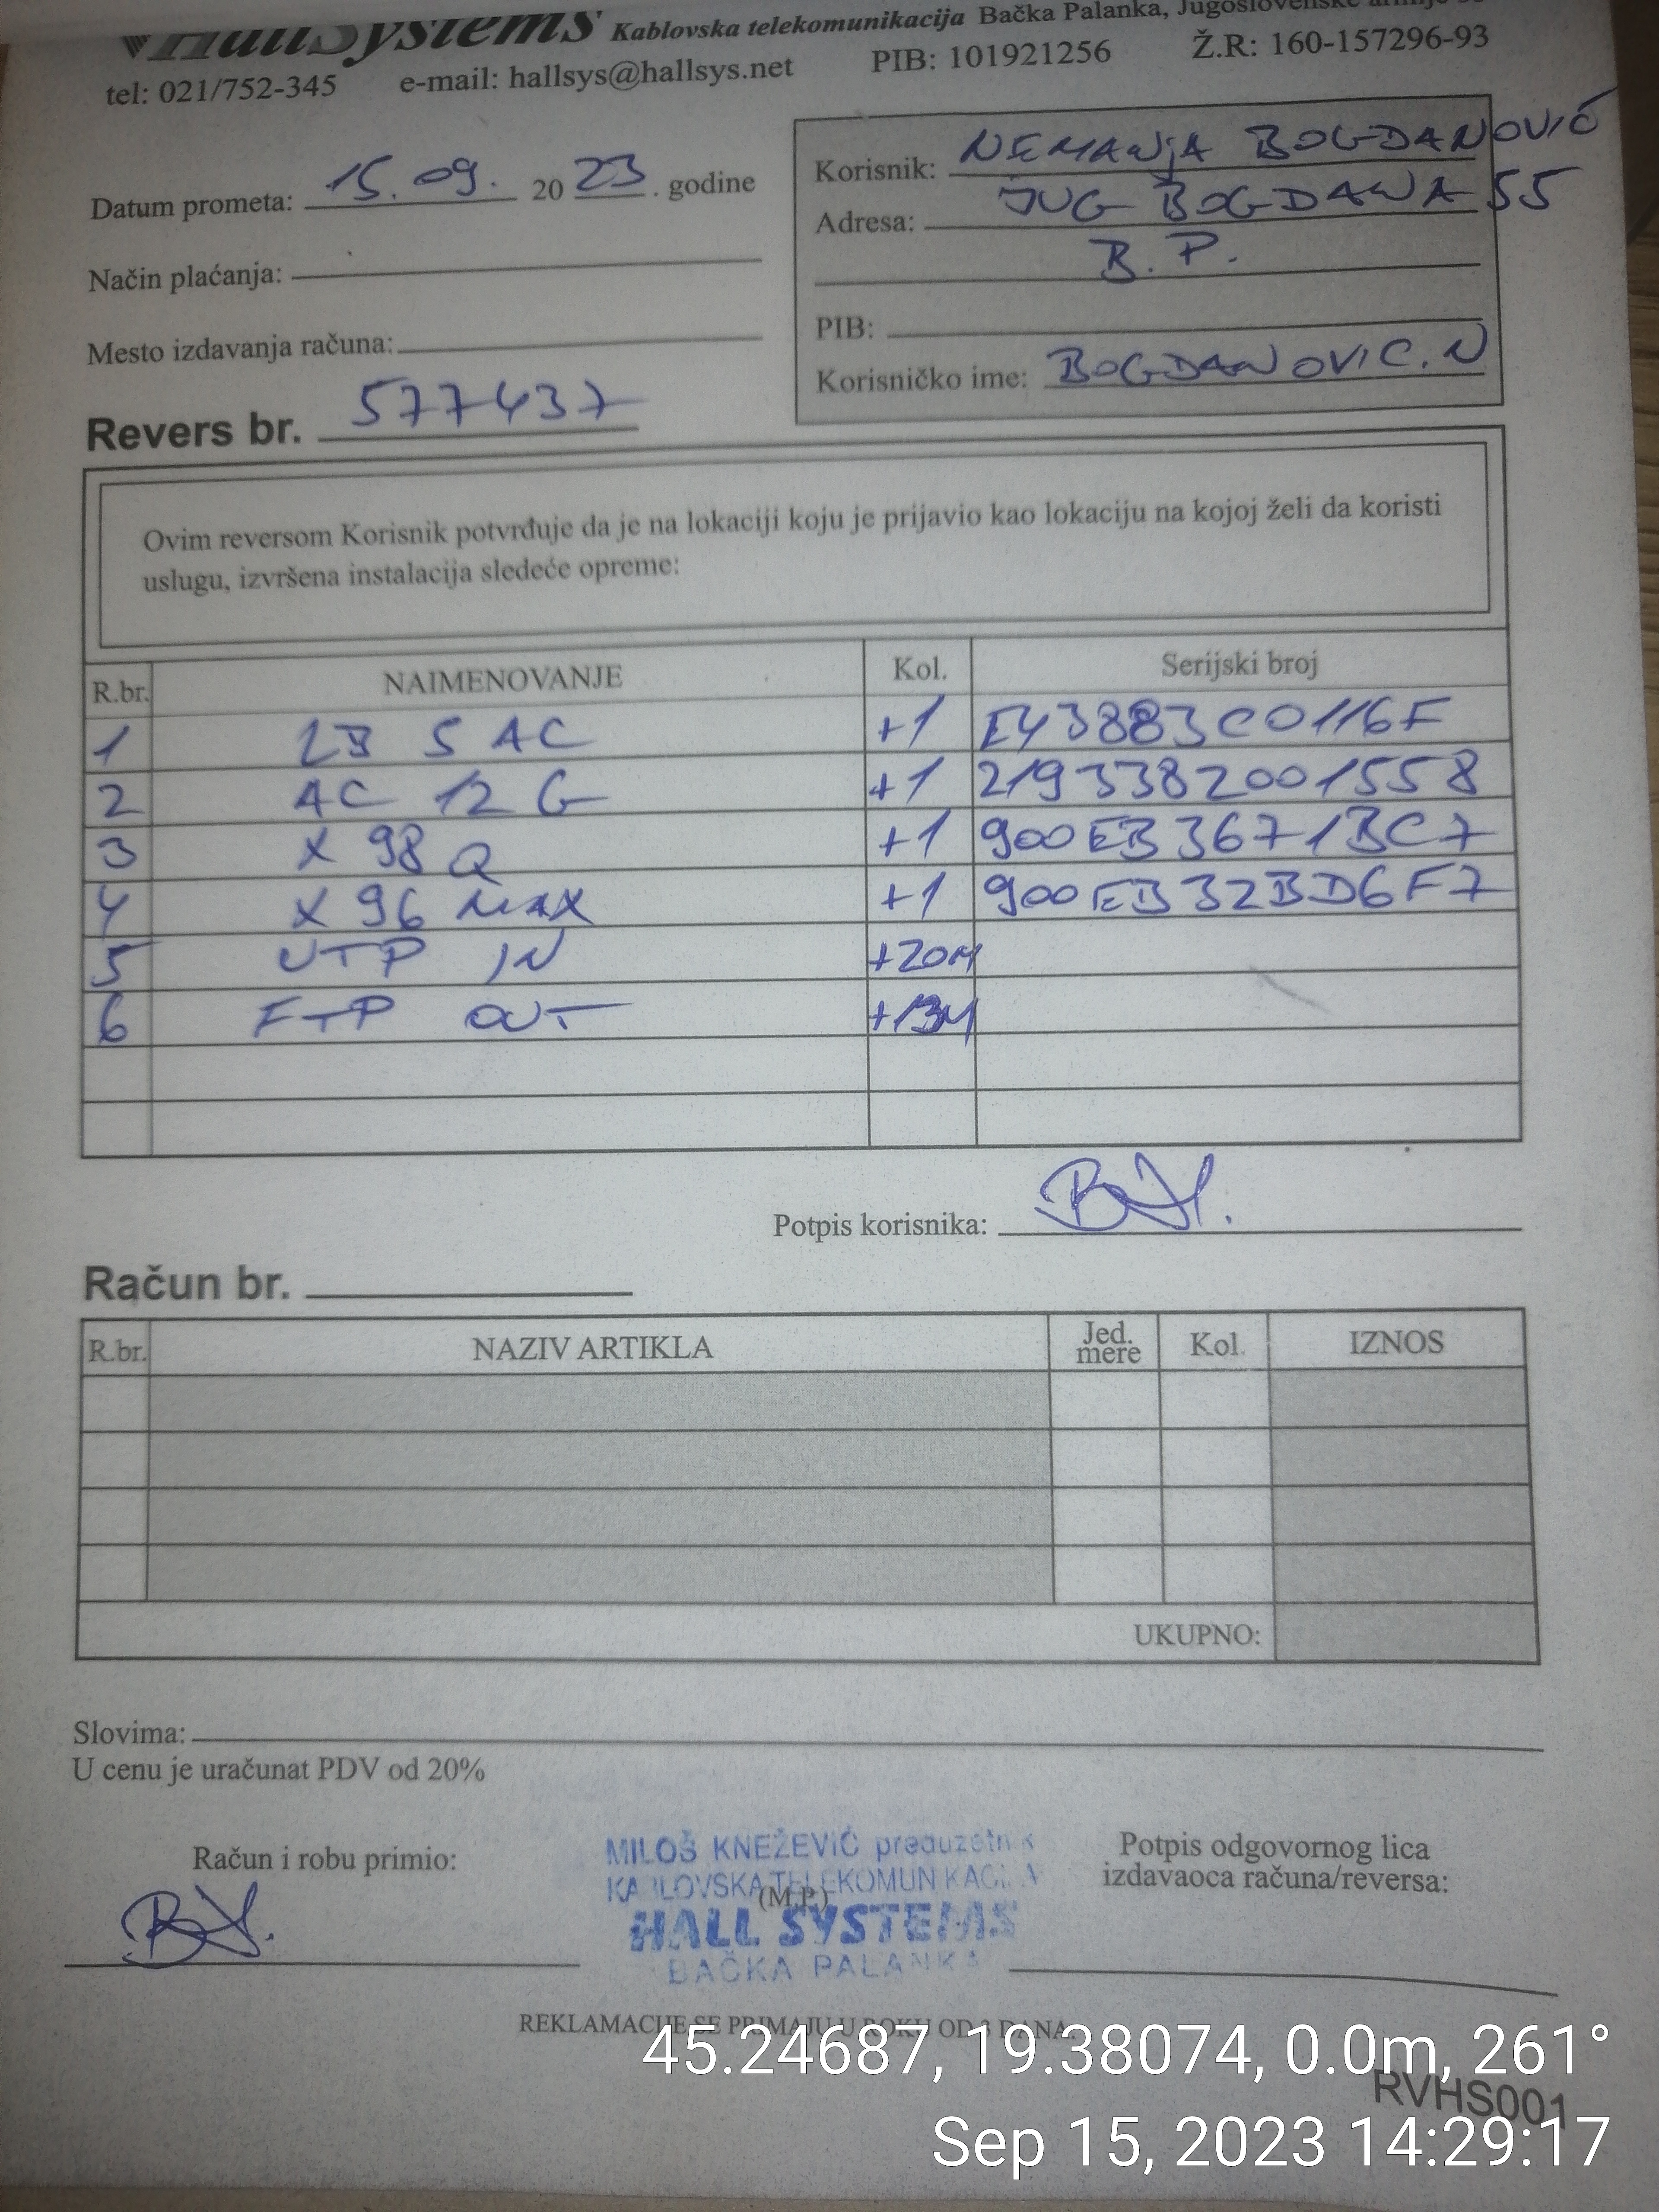 HallSystems Kablovska telekomunikacija Bačka Palanka, Jugoslovenske armije
tel: 021/752-345 e-mail: hallsys@hallsys.net PIB: 101921256 Ž.R: 160-157296-93
Datum prometa: 15.09. 2023. godine
Način plaćanja:
Mesto izdavanja računa:
Korisnik: NEMANJA BOGDANOVIĆ
Adresa: JUG BOGDANA 55
B.P.
PIB:
Korisničko ime: BOGDANOVIC.N
Revers br. 577437
Ovim reversom Korisnik potvrđuje da je na lokaciji koju je prijavio kao lokaciju na kojoj želi da koristi
uslugu, izvršena instalacija sledeće opreme:
R.br. NAIMENOVANJE Kol. Serijski broj
1 LB 5 AC +1 E43883C0116F
2 AC 12 G +1 2193382001558
3 X 98 Q +1 900EB3671BC7
4 X 96 MAX +1 900EB32BD6F7
5 UTP IN +20M
6 FTP OUT +13M
Potpis korisnika:
Račun br.
R.br. NAZIV ARTIKLA Jed. mere Kol. IZNOS
UKUPNO:
Slovima:
U cenu je uračunat PDV od 20%
Račun i robu primio:
MILOŠ KNEŽEVIĆ preduzetnik
KABLOVSKA TELEKOMUNIKACIJA
(M.P.)
HALL SYSTEMS
BAČKA PALANKA
Potpis odgovornog lica
izdavaoca računa/reversa:
REKLAMACIJE SE PRIMAJU U ROKU OD 3 DANA.
45.24687, 19.38074, 0.0m, 261°
RVHS001
Sep 15, 2023 14:29:17